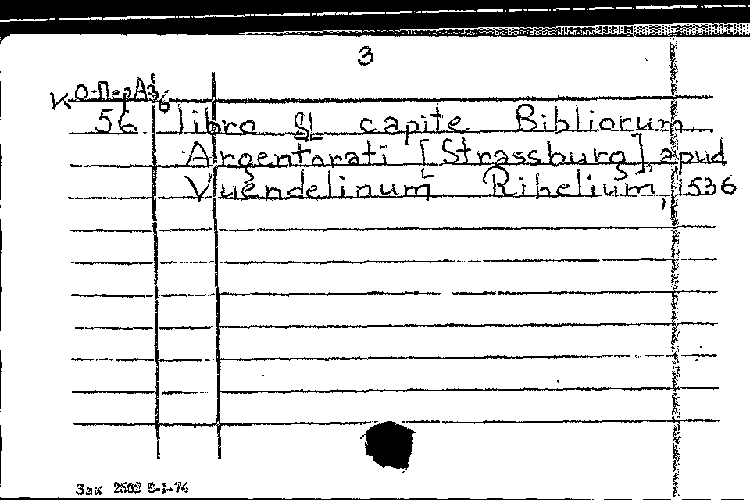 3
О-П-рАз6
56 libro & capite Bibliorum
Argentorati [Strassburg], apud
Vuendelinum Rihelium, 1536
Зак 2502 8-I-74